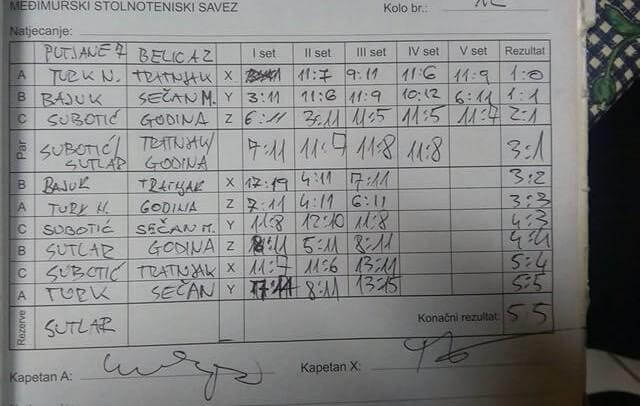 MEĐIMURSKI STOLNOTENISKI SAVEZ Kolo br.:
Natjecanje:
PUTJANE 7 BELICA 2 I set II set III set IV set V set Rezultat
A TURK N. TRATNJAK X 11:7 9:11 11:6 11:9 1:0
B BAJUK SEČAN M. Y 3:11 11:6 11:9 10:12 6:11 1:1
C SUBOTIĆ GODINA Z 6:11 3:11 11:5 11:5 11:7 2:1
Par SUBOTIĆ/ SUTLAR TRATNJAK/ GODINA 7:11 11:7 11:8 11:8 3:1
B BAJUK TRATNJAK X 17:19 4:11 7:11 3:2
A TURK N. GODINA Z 7:11 4:11 6:11 3:3
C SUBOTIĆ SEČAN M. Y 11:8 12:10 11:8 4:3
B SUTLAR GODINA Z 8:11 5:11 8:11 4:4
C SUBOTIĆ TRATNJAK X 11:7 11:6 13:11 5:4
A TURK SEČAN Y 8:11 13:15 5:5
Rezerve SUTLAR Konačni rezultat: 5 5
Kapetan A: Kapetan X: